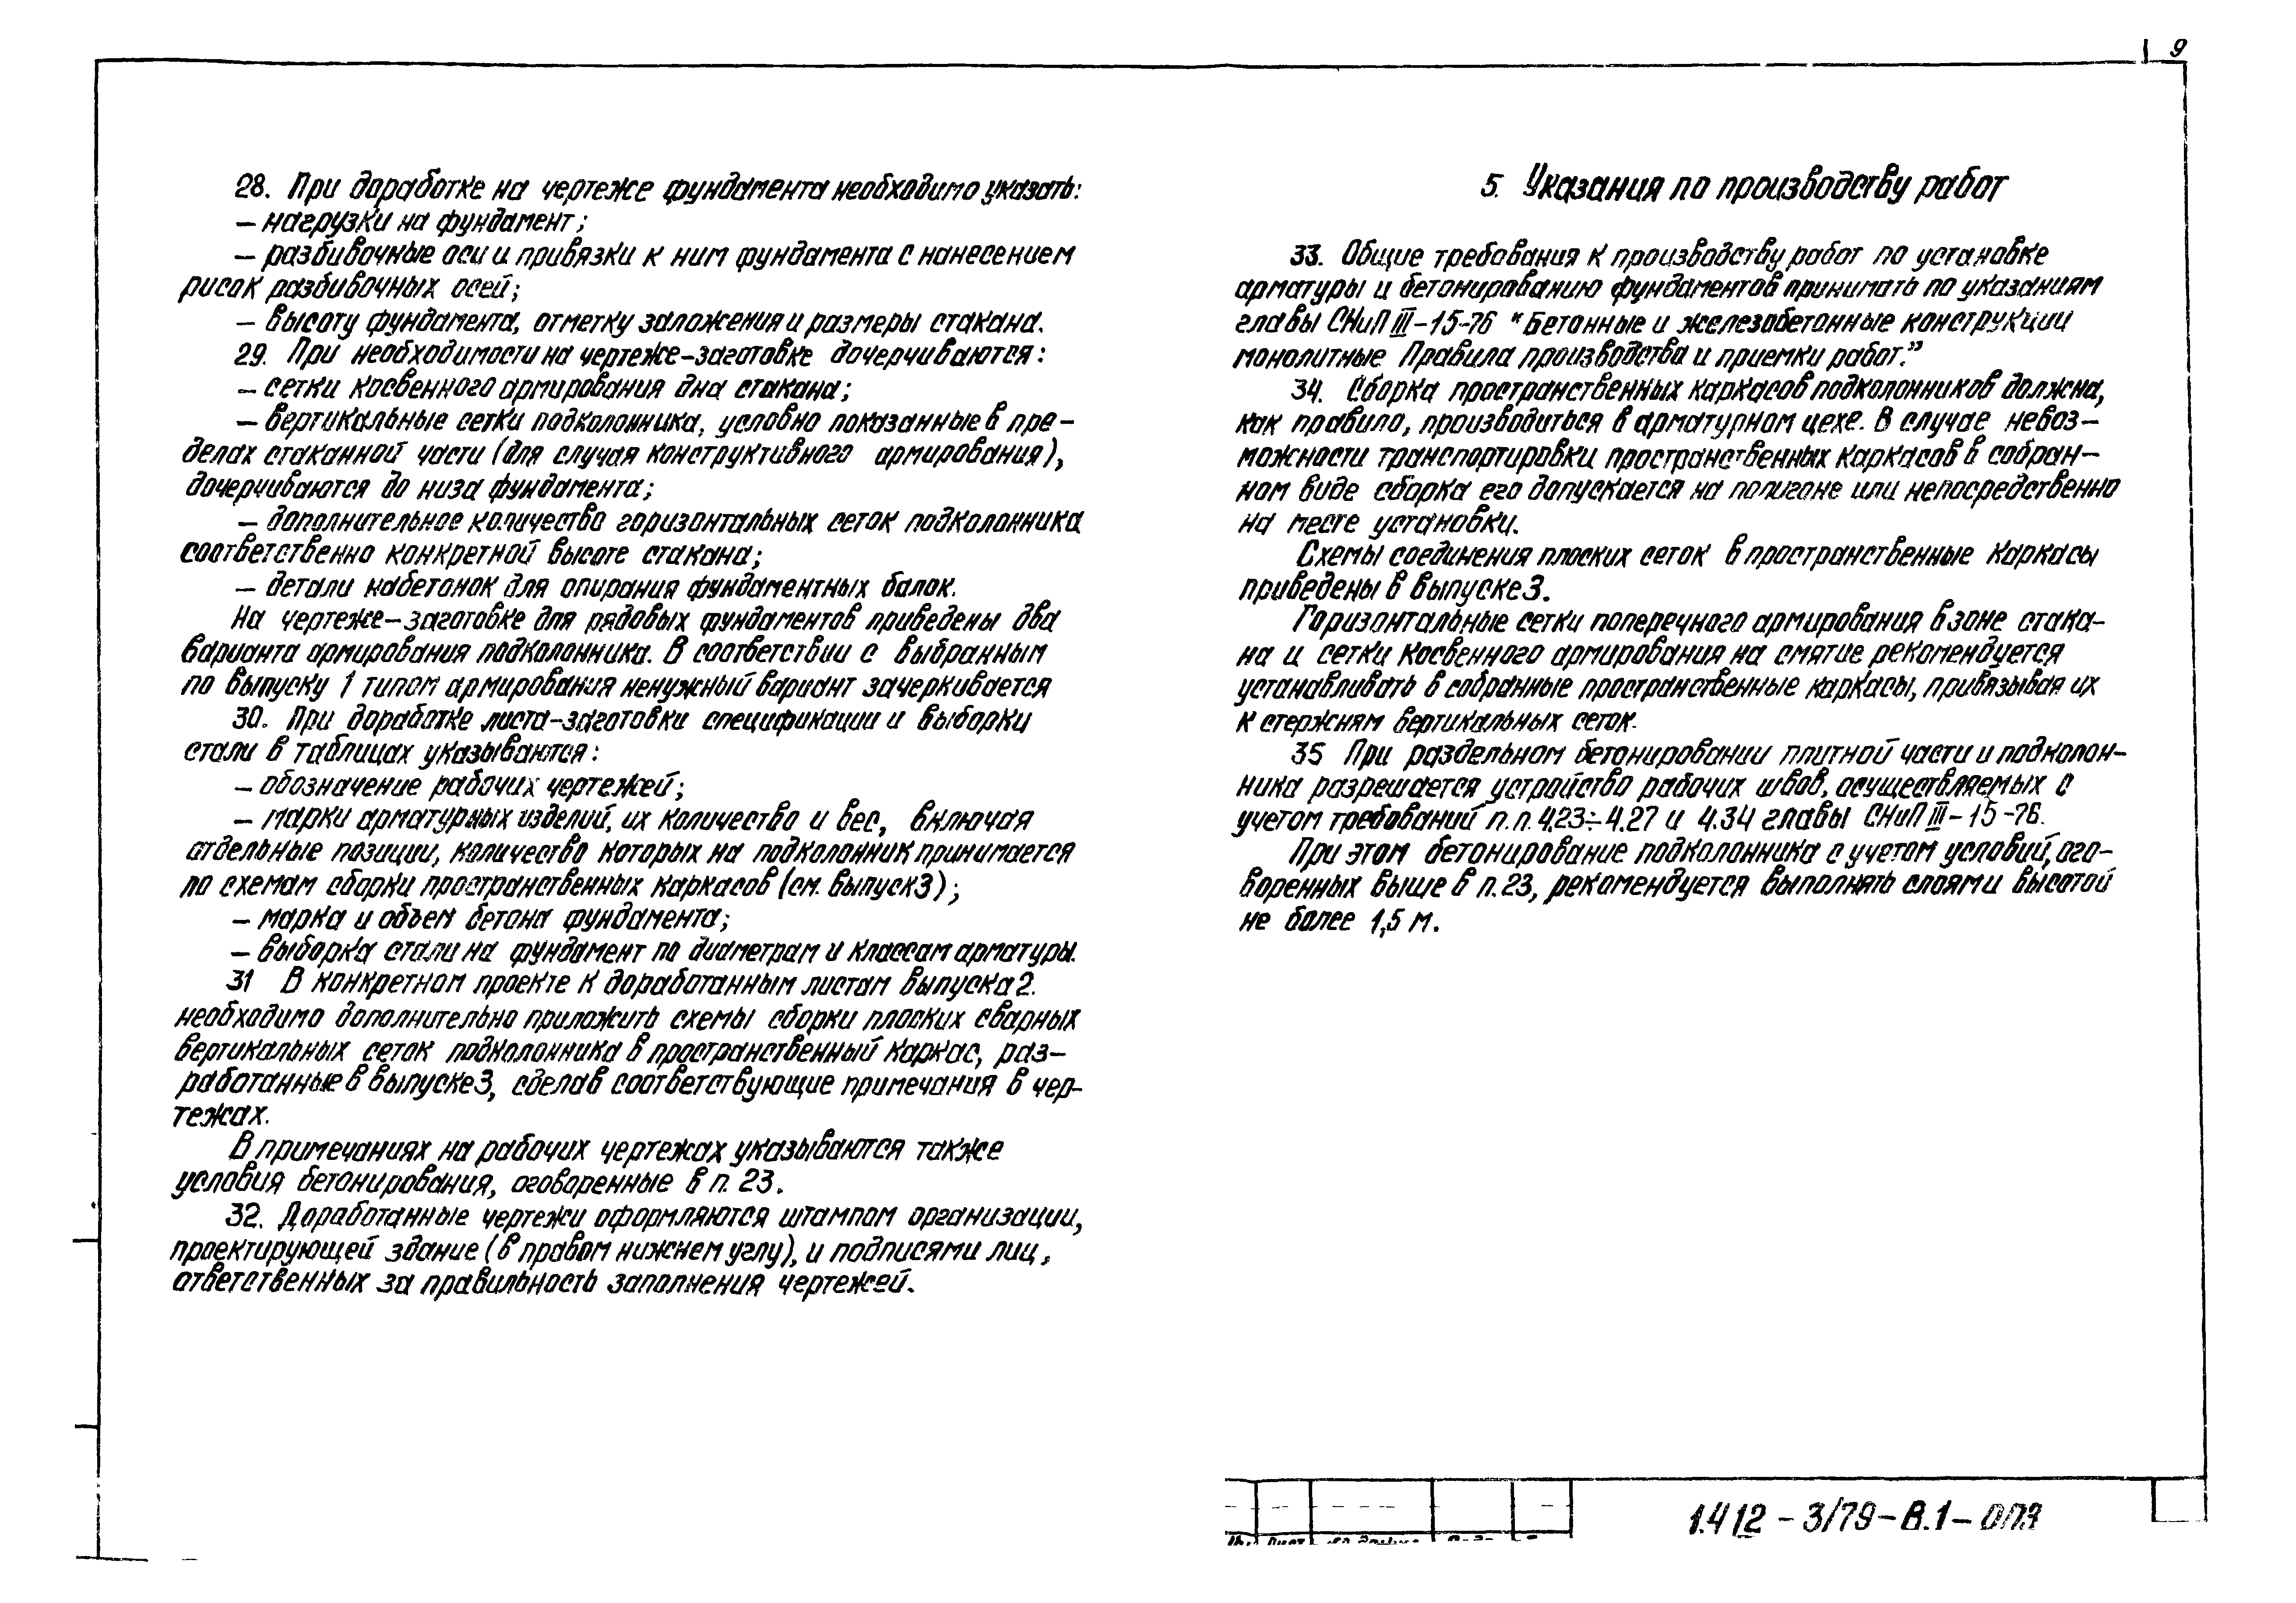 9
28. При доработке на чертеже фундамента необходимо указать:
— нагрузки на фундамент;
— разбивочные оси и привязки к ним фундамента с нанесением
рисок разбивочных осей;
— высоту фундамента, отметку заложения и размеры стакана.
29. При необходимости на чертеже-заготовке дочерчиваются:
— сетки косвенного армирования дна стакана;
— вертикальные сетки подколонника, условно показанные в пре-
делах стаканной части (для случая конструктивного армирования),
дочерчиваются до низа фундамента;
— дополнительное количество горизонтальных сеток подколонника
соответственно конкретной высоте стакана;
— детали набетонок для опирания фундаментных балок.
На чертеже-заготовке для рядовых фундаментов приведены два
варианта армирования подколонника. В соответствии с выбранным
по выпуску 1 типом армирования ненужный вариант зачеркивается
30. При доработке листа-заготовки спецификации и выборки
стали в таблицах указываются:
— обозначение рабочих чертежей;
— марки арматурных изделий, их количество и вес, включая
отдельные позиции, количество которых на подколонник принимается
по схемам сборки пространственных каркасов (см. выпуск 3);
— марка и объем бетона фундамента;
— выборка стали на фундамент по диаметрам и классам арматуры.
31 В конкретном проекте к доработанным листам выпуска 2.
необходимо дополнительно приложить схемы сборки плоских сварных
вертикальных сеток подколонника в пространственный каркас, раз-
работанные в выпуске 3, сделав соответствующие примечания в чер-
тежах.
В примечаниях на рабочих чертежах указываются также
условия бетонирования, оговоренные в п. 23.
32. Доработанные чертежи оформляются штампом организации,
проектирующей здание (в правом нижнем углу), и подписями лиц,
ответственных за правильность заполнения чертежей.
5. Указания по производству работ
33. Общие требования к производству работ по установке
арматуры и бетонированию фундаментов принимать по указаниям
главы СНиП III-15-76 "Бетонные и железобетонные конструкции
монолитные Правила производства и приемки работ."
34. Сборка пространственных каркасов подколонников должна,
как правило, производиться в арматурном цехе. В случае невоз-
можности транспортировки пространственных каркасов в собран-
ном виде сборка его допускается на полигоне или непосредственно
на месте установки.
Схемы соединения плоских сеток в пространственные каркасы
приведены в выпуске 3.
Горизонтальные сетки поперечного армирования в зоне стака-
на и сетки косвенного армирования на смятие рекомендуется
устанавливать в собранные пространственные каркасы, привязывая их
к стержням вертикальных сеток.
35 При раздельном бетонировании плитной части и подколон-
ника разрешается устройство рабочих швов, осуществляемых с
учетом требований п.п. 4.23÷4.27 и 4.34 главы СНиП III-15-76.
При этом бетонирование подколонника с учетом условий, ого-
воренных выше в п. 23, рекомендуется выполнять слоями высотой
не более 1,5 м.
1.412-3/79-В.1-ОПЗ
Лист